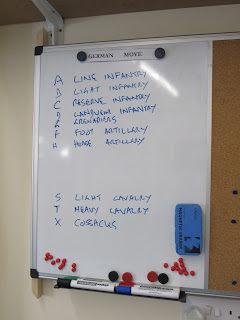 GERMAN MOVE
A LINE INFANTRY
B LIGHT INFANTRY
C RESERVE INFANTRY
D LANDWEHR INFANTRY
E GRENADIERS
F FOOT ARTILLERY
H HORSE ARTILLERY
S LIGHT CAVALRY
T HEAVY CAVALRY
X COSSACKS